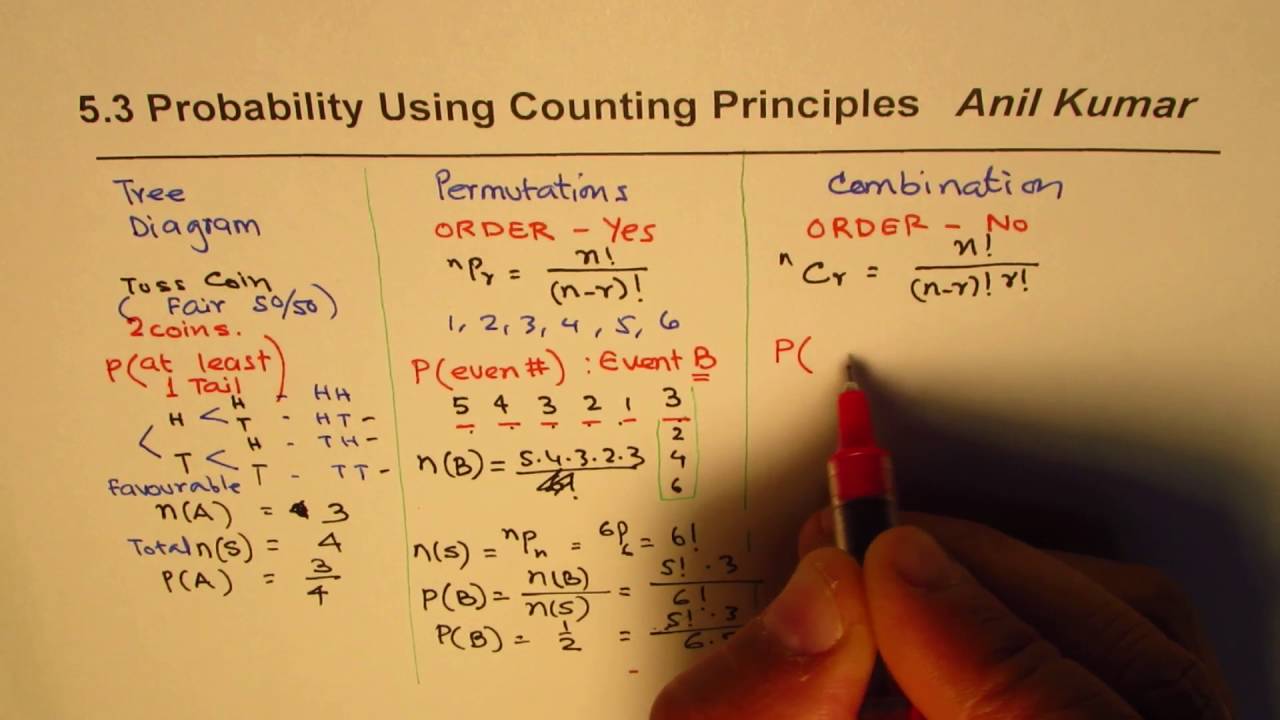 5.3 Probability Using Counting Principles Anil Kumar
Tree
Diagram
Toss Coin
( Fair 50/50 )
2 coins.
P(at least
1 Tail)
H < H - HH
T - HT -
< H - TH -
T < T - TT -
favourable
n(A) = 3
Total n(S) = 4
P(A) = 3/4
Permutations
ORDER - Yes
nPr = n!/(n-r)!
1, 2, 3, 4, 5, 6
P(even #) : Event B
5 4 3 2 1 3
2
4
6
n(B) = 5.4.3.2.3
n(S) = nPn = 6P6 = 6!
P(B) = n(B)/n(S) = 5! · 3/6!
P(B) = 1/2 = 5! · 3/6.5
Combination
ORDER - No
nCr = n!/(n-r)! r!
P(